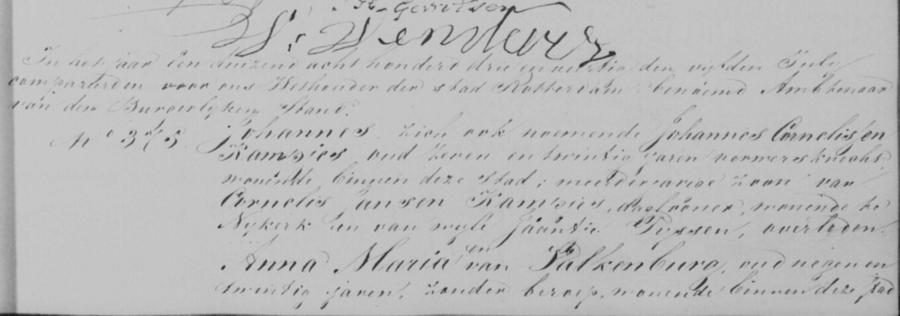 Gerritsen
In het jaar een duizend acht honderd drie en veertig den vijfden July
compareerden voor ons Wethouder der stad Rotterdam benoemd Ambtenaar
van den Burgerlyken Stand.
No 375. Johannes zich ook noemende Johannes Cornelissen
Kamsies oud zeven en twintig jaren
wonende binnen deze Stad; meerderjarige zoon van
Cornelis Jansen Kamsies, daglooner, wonende te
Nykerk en van wyle Jaantje Tyssen, overleden.
en
Anna Maria van Valkenburg, oud negen en
twintig jaren, zonder beroep, wonende binnen deze stad